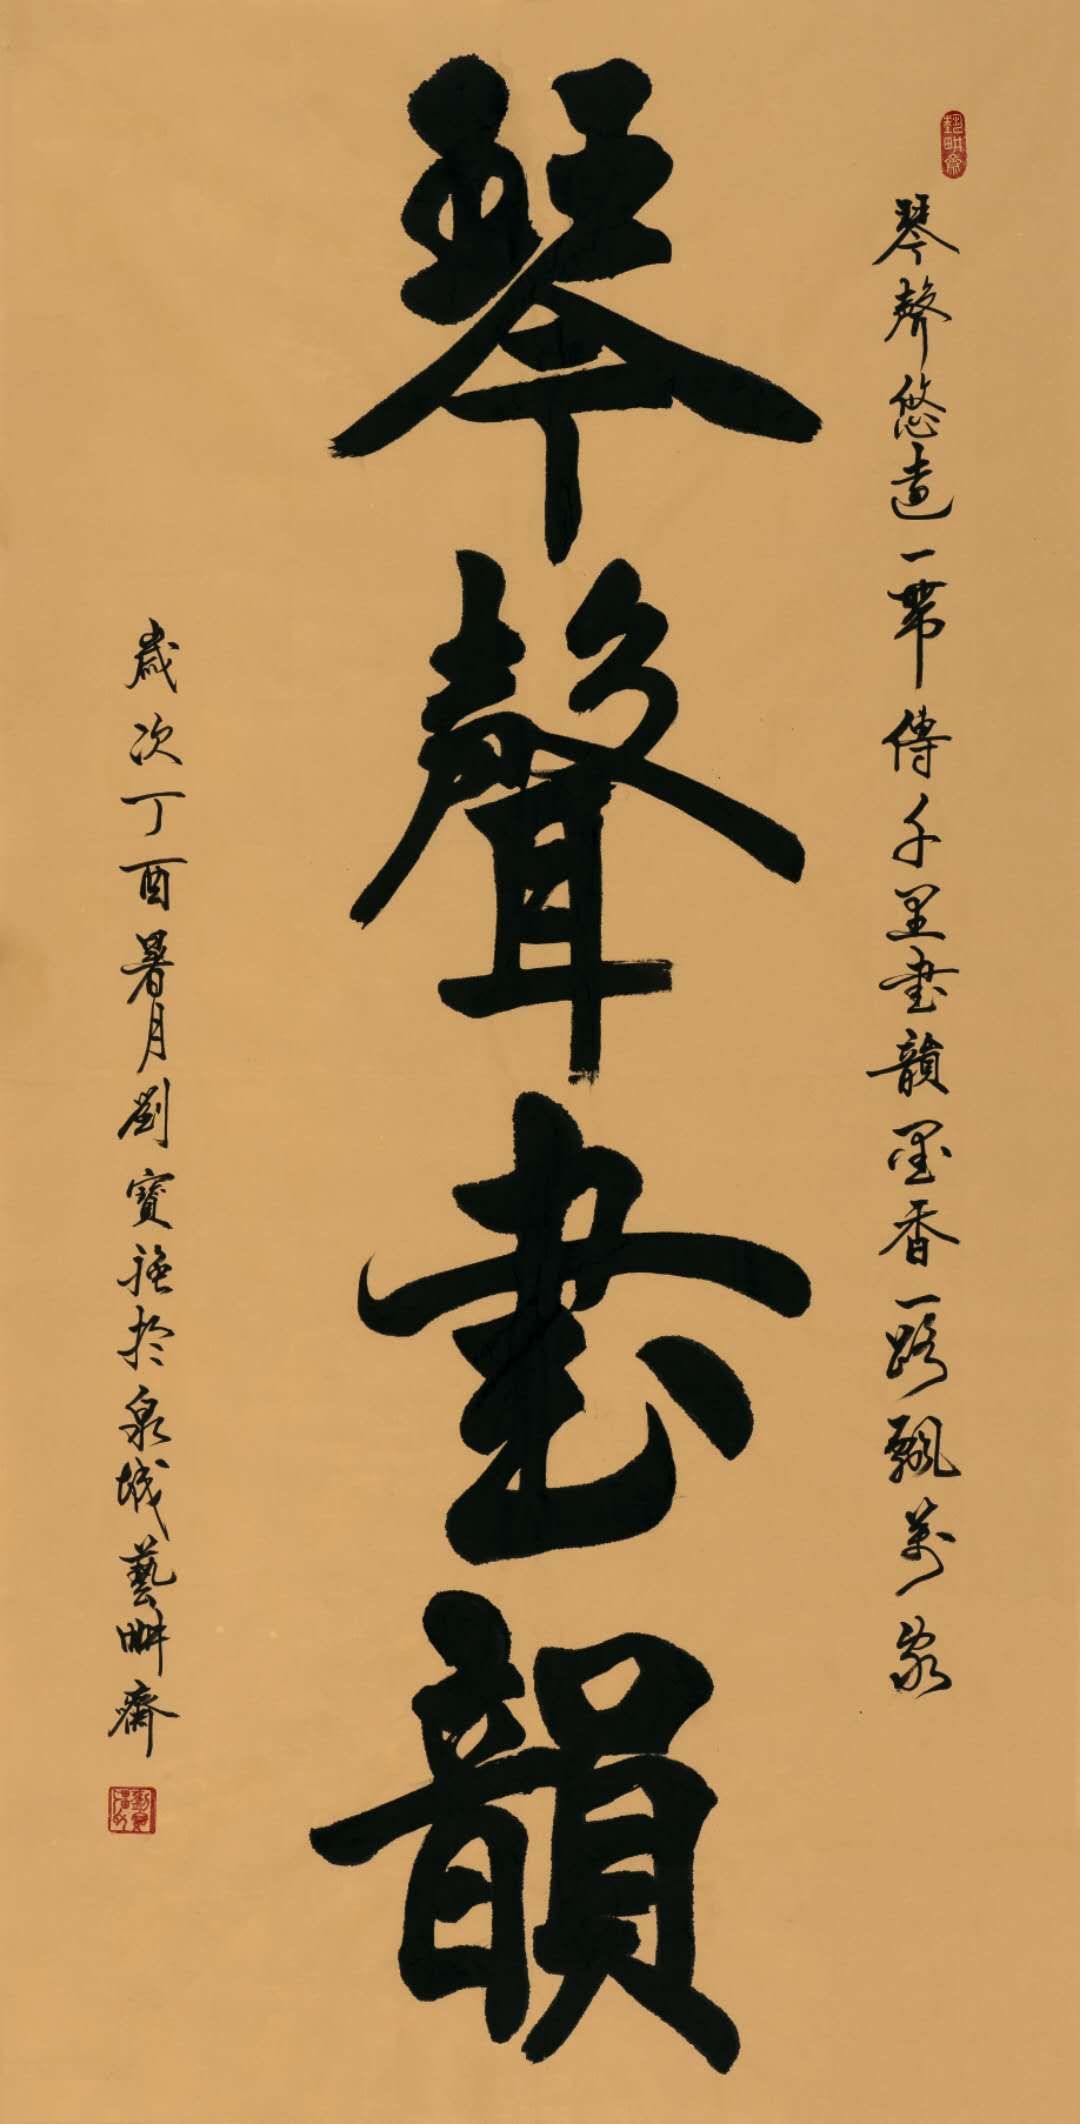 藝畊齋
琴聲悠遠一帶傳千里書韻墨香一路飄萬家
琴聲書韻
歲次丁酉暑月劉寶於泉城藝畊齋